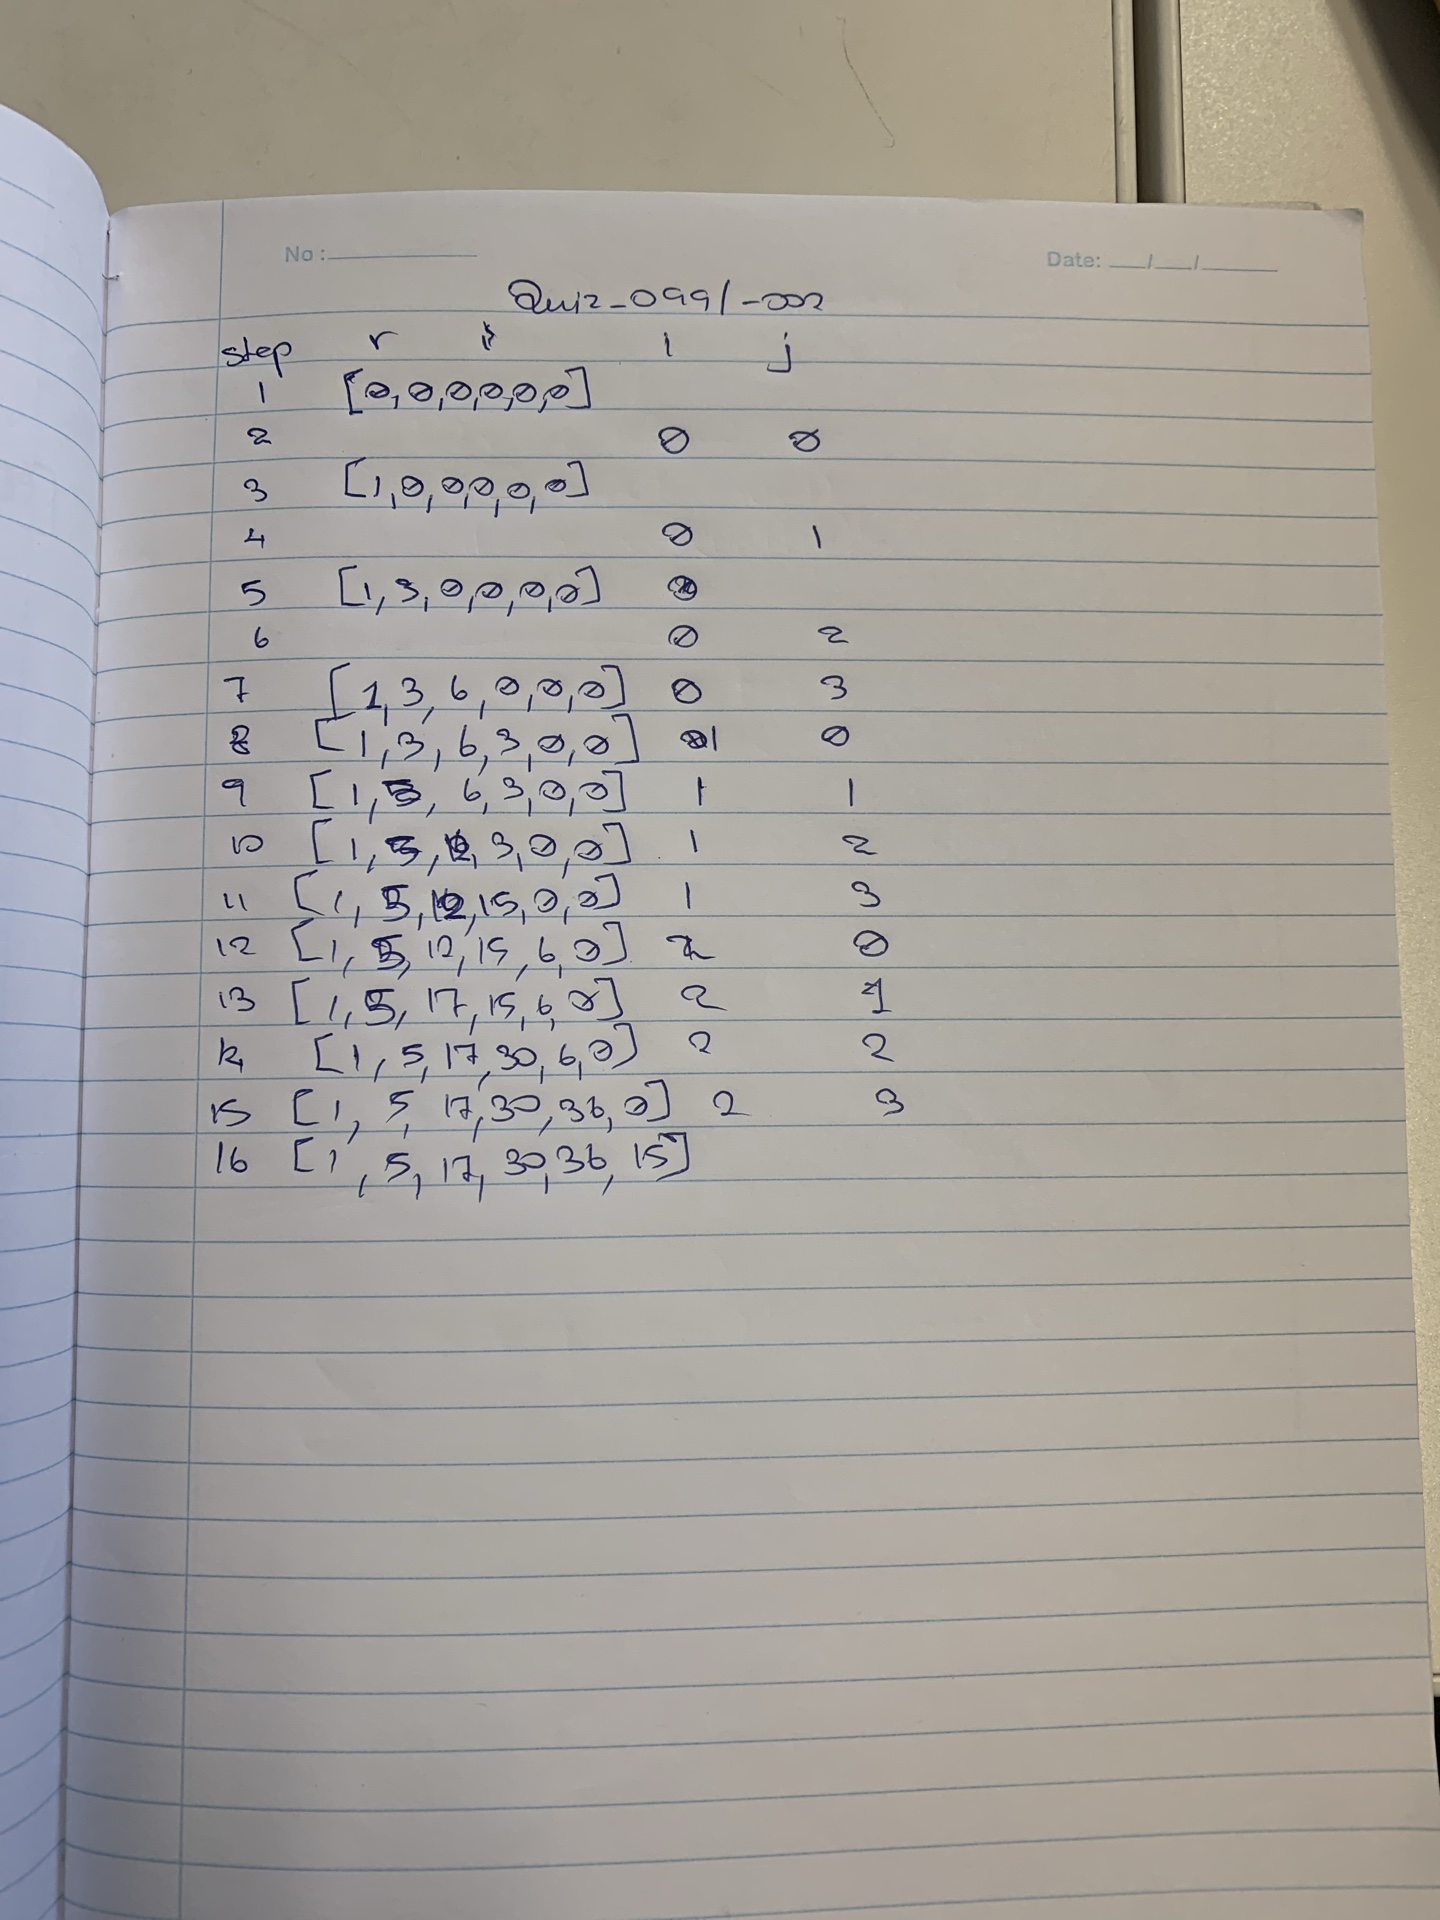 No :
Date: __/__/____
Quiz_099/-002
step r i j
1 [0,0,0,0,0,0]
2 0 0
3 [1,0,0,0,0,0]
4 0 1
5 [1,3,0,0,0,0]
6 0 2
7 [1,3,6,0,0,0] 0 3
8 [1,3,6,3,0,0] 1 0
9 [1,5,6,3,0,0] 1 1
10 [1,5,12,3,0,0] 1 2
11 [1,5,12,15,0,0] 1 3
12 [1,5,12,15,6,0] 2 0
13 [1,5,17,15,6,0] 2 1
14 [1,5,17,30,6,0] 2 2
15 [1,5,17,30,36,0] 2 3
16 [1,5,17,30,36,15]